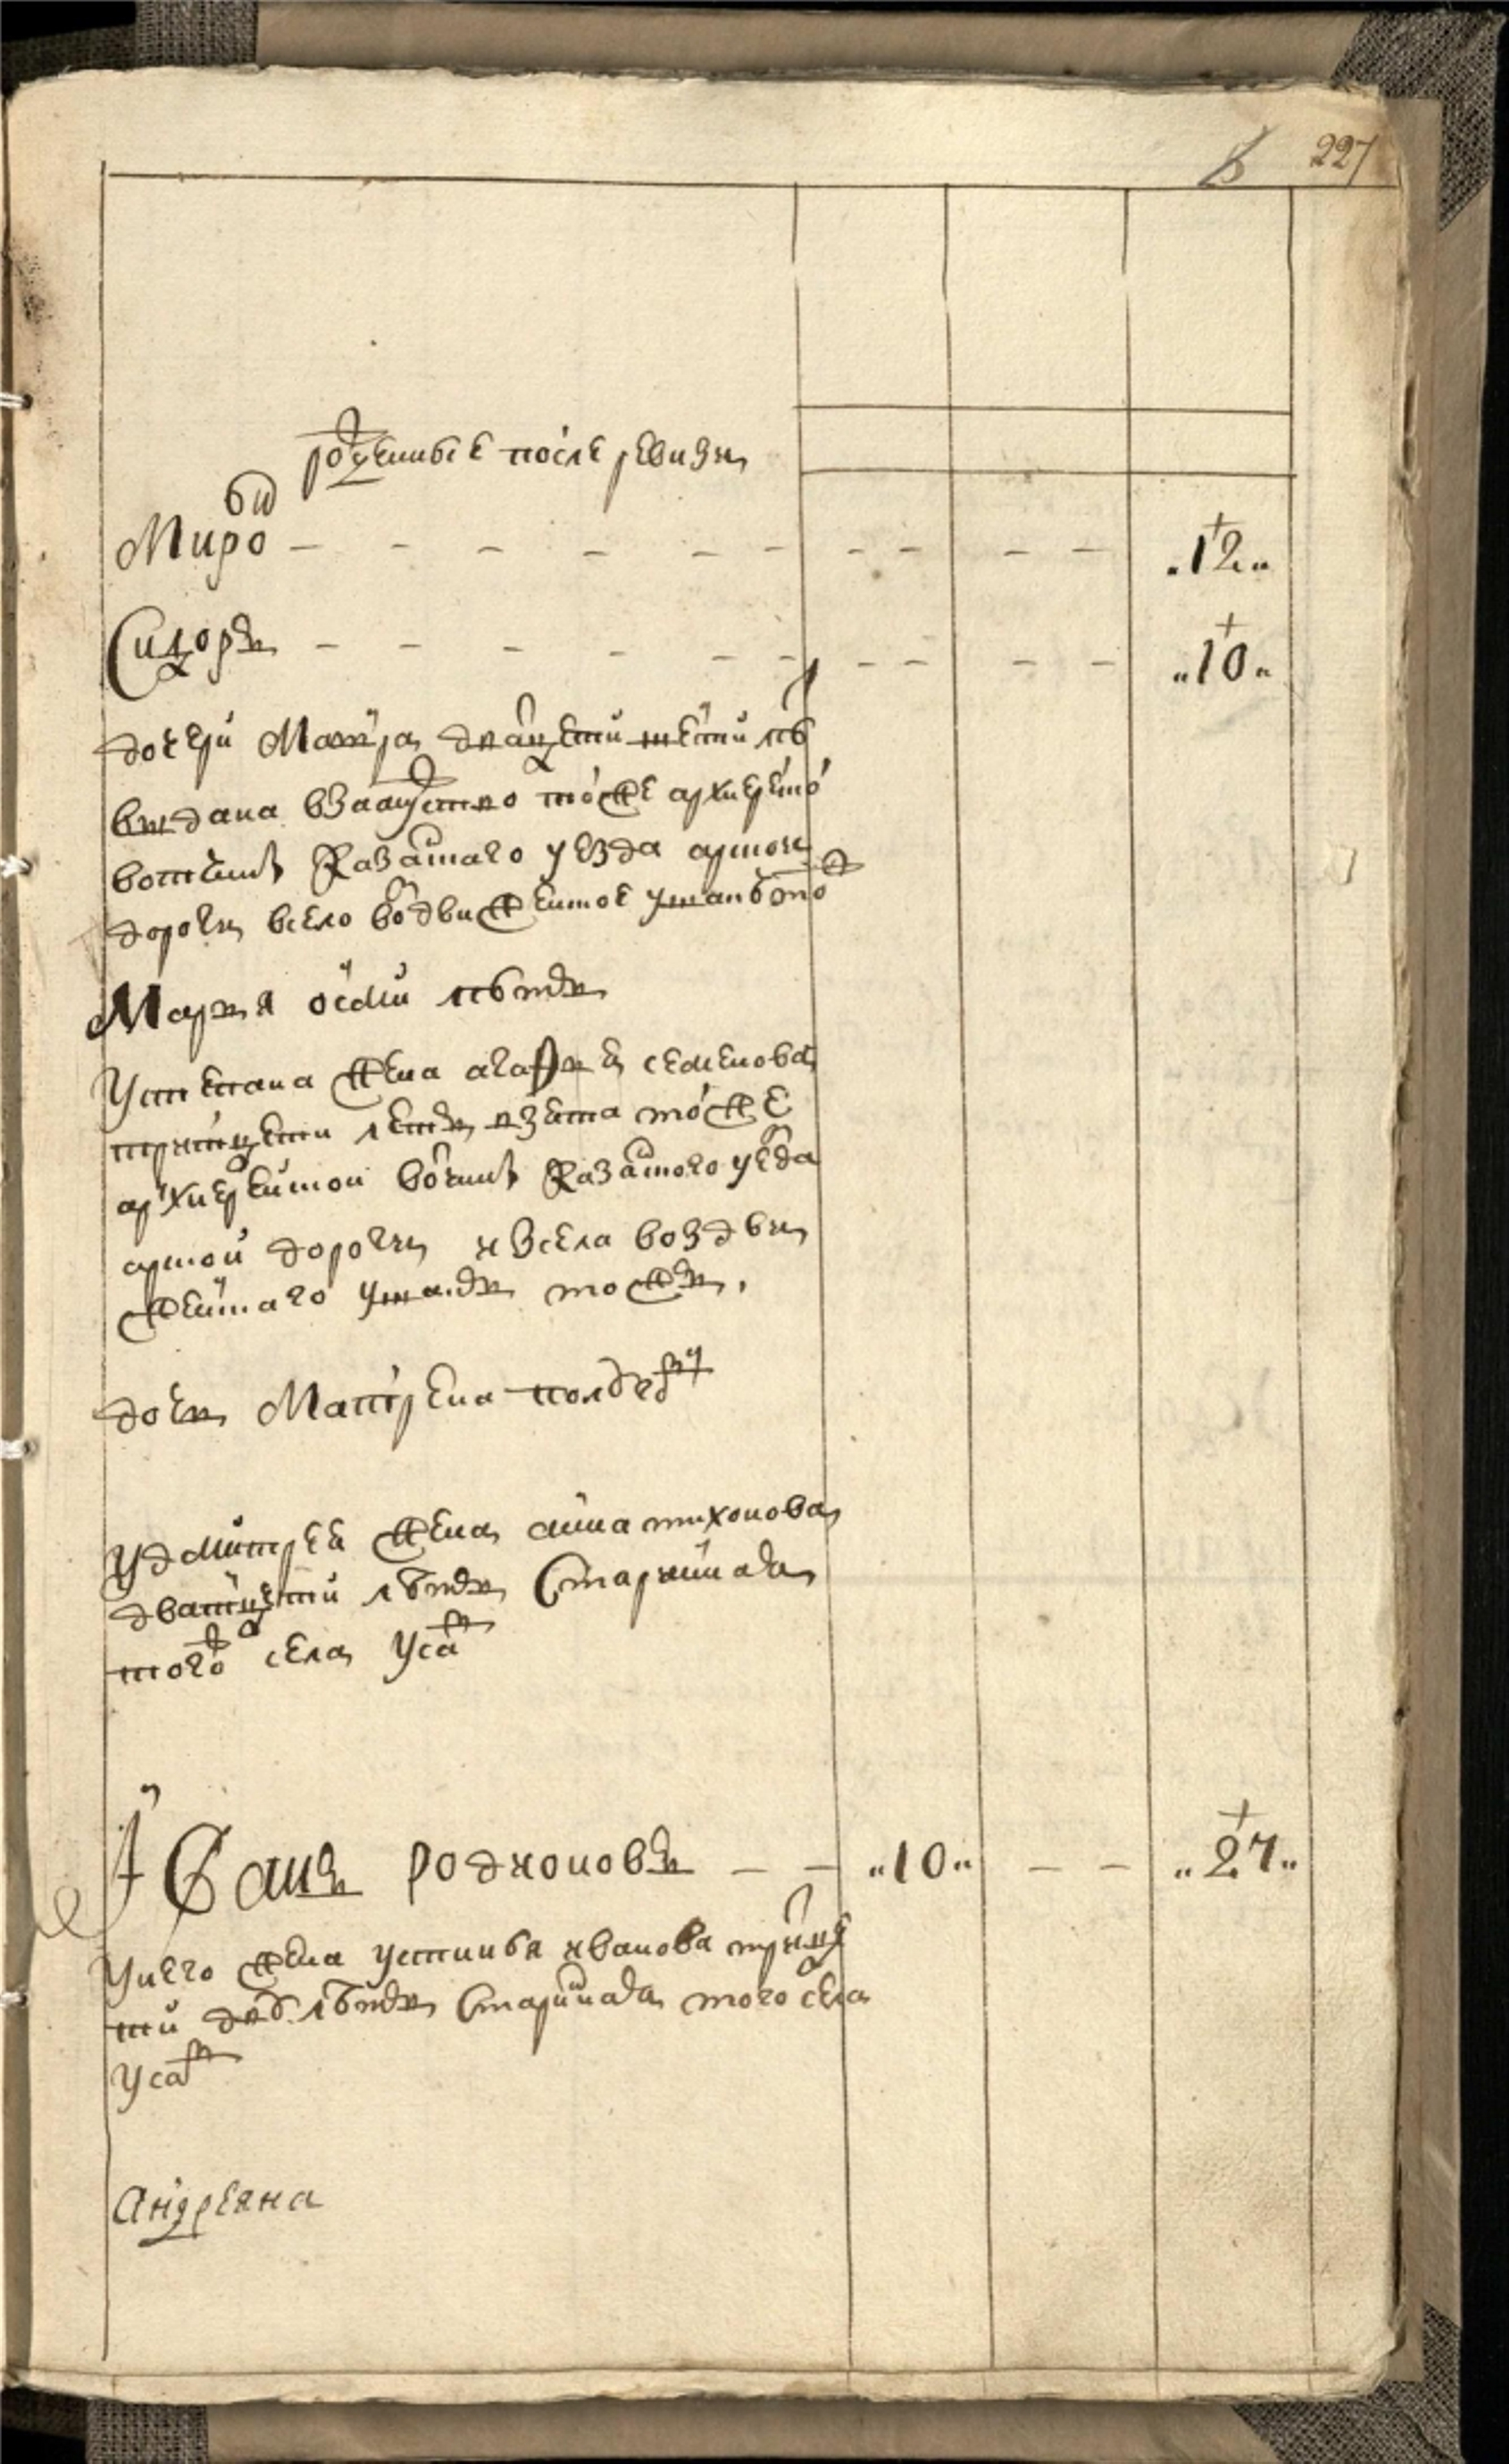 227
рожденные после ревизи
Миронъ 12
Сидоръ 10
дочери Матрена дватцети шести летъ
выдана взамужство тоеже архиерейской
вотчины Казанского уезда арской
дороги всело воздвиженское ушанбъ тожъ
Марья осми летъ
У степана жена агафья семенова
тритцети летъ взета тоеже
архиерейской вотчины Казанского уезда
арской дороги изсела воздви
женского ушанбъ тожъ,
дочь Матрена полугоду
У дмитрея жена анна тихонова
дватцети летъ Старинная
тогожъ села
Иванъ родионовъ 10 27
У него жена устинья иванова тритце
ти дву летъ Старинная того села
андреяна